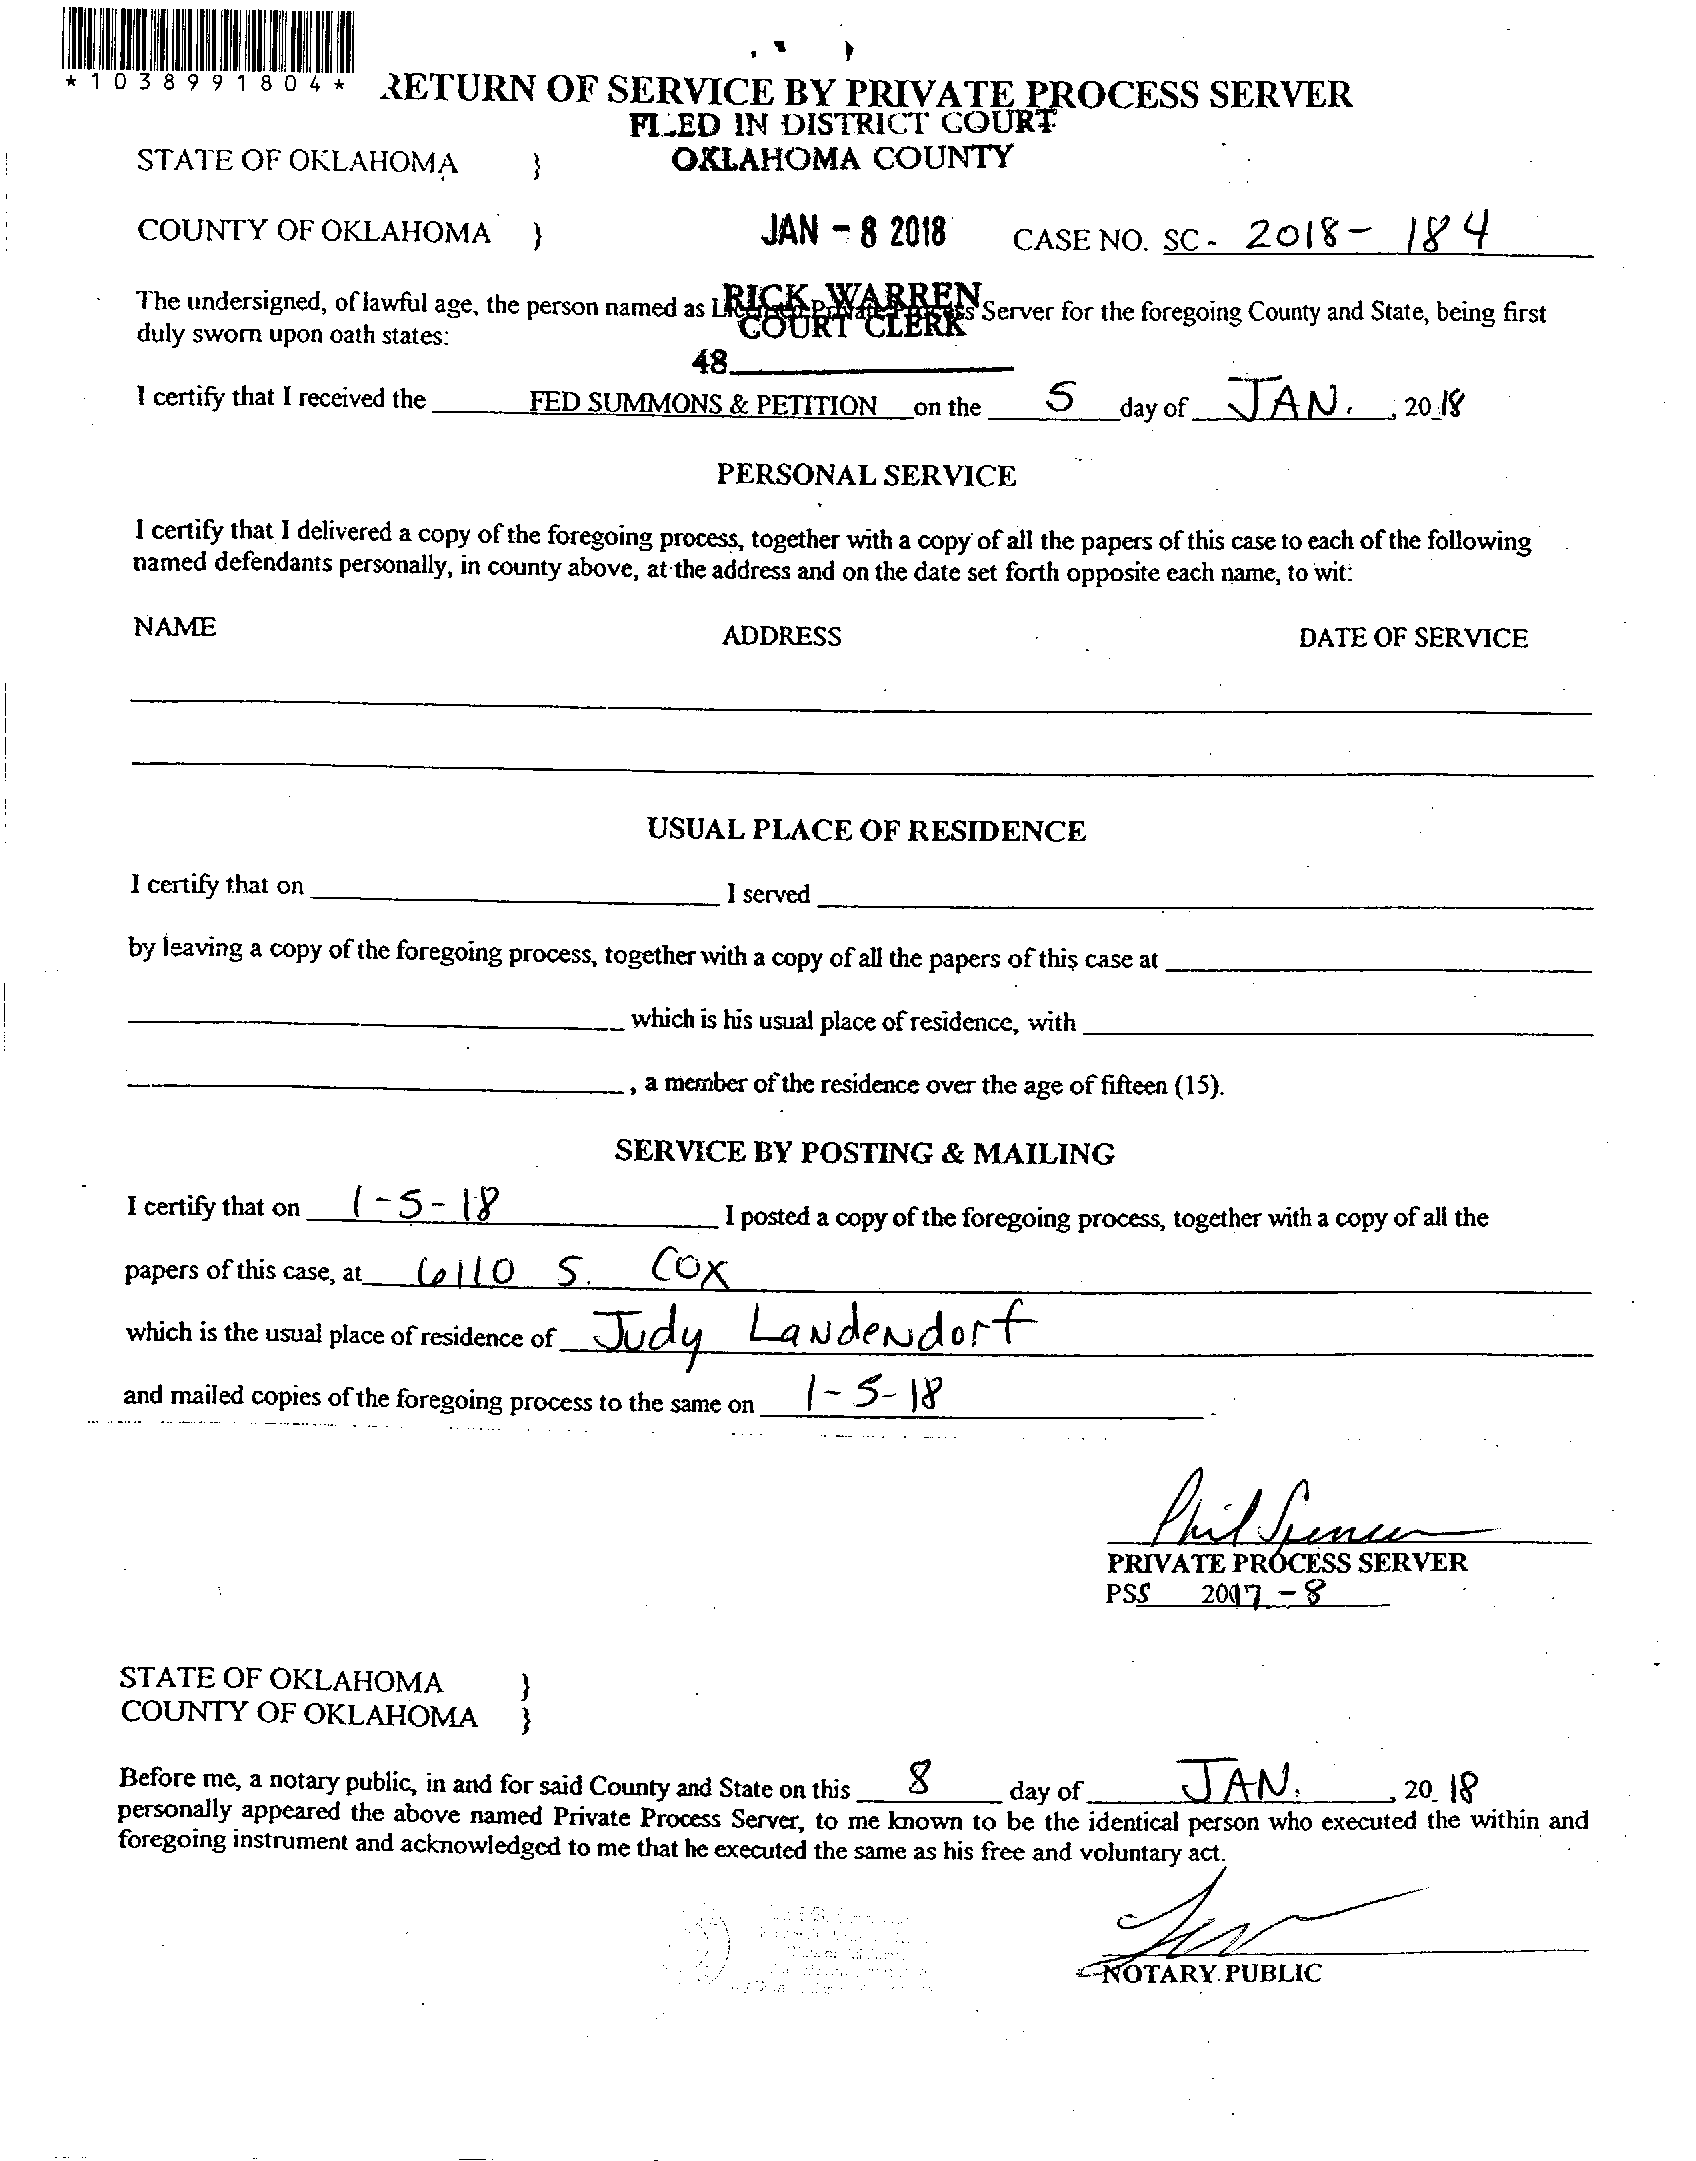 *1038991804*
RETURN OF SERVICE BY PRIVATE PROCESS SERVER
FILED IN DISTRICT COURT
STATE OF OKLAHOMA } OKLAHOMA COUNTY
COUNTY OF OKLAHOMA } JAN - 8 2018 CASE NO. SC - 2018- 184
RICK WARREN
The undersigned, of lawful age, the person named as Licensed Private Process Server for the foregoing County and State, being first
COURT CLERK
duly sworn upon oath states:
48
I certify that I received the FED SUMMONS & PETITION on the 5 day of JAN. , 2018
PERSONAL SERVICE
I certify that I delivered a copy of the foregoing process, together with a copy of all the papers of this case to each of the following
named defendants personally, in county above, at the address and on the date set forth opposite each name, to wit:
NAME ADDRESS DATE OF SERVICE
USUAL PLACE OF RESIDENCE
I certify that on I served
by leaving a copy of the foregoing process, together with a copy of all the papers of this case at
which is his usual place of residence, with
, a member of the residence over the age of fifteen (15).
SERVICE BY POSTING & MAILING
I certify that on 1-5-18 I posted a copy of the foregoing process, together with a copy of all the
papers of this case, at 6110 S. COX
which is the usual place of residence of Judy Landendorf
and mailed copies of the foregoing process to the same on 1-5-18
Phil Spencer
PRIVATE PROCESS SERVER
PSS 2017-8
STATE OF OKLAHOMA }
COUNTY OF OKLAHOMA }
Before me, a notary public, in and for said County and State on this 8 day of JAN. , 20 18
personally appeared the above named Private Process Server, to me known to be the identical person who executed the within and
foregoing instrument and acknowledged to me that he executed the same as his free and voluntary act.
NOTARY PUBLIC